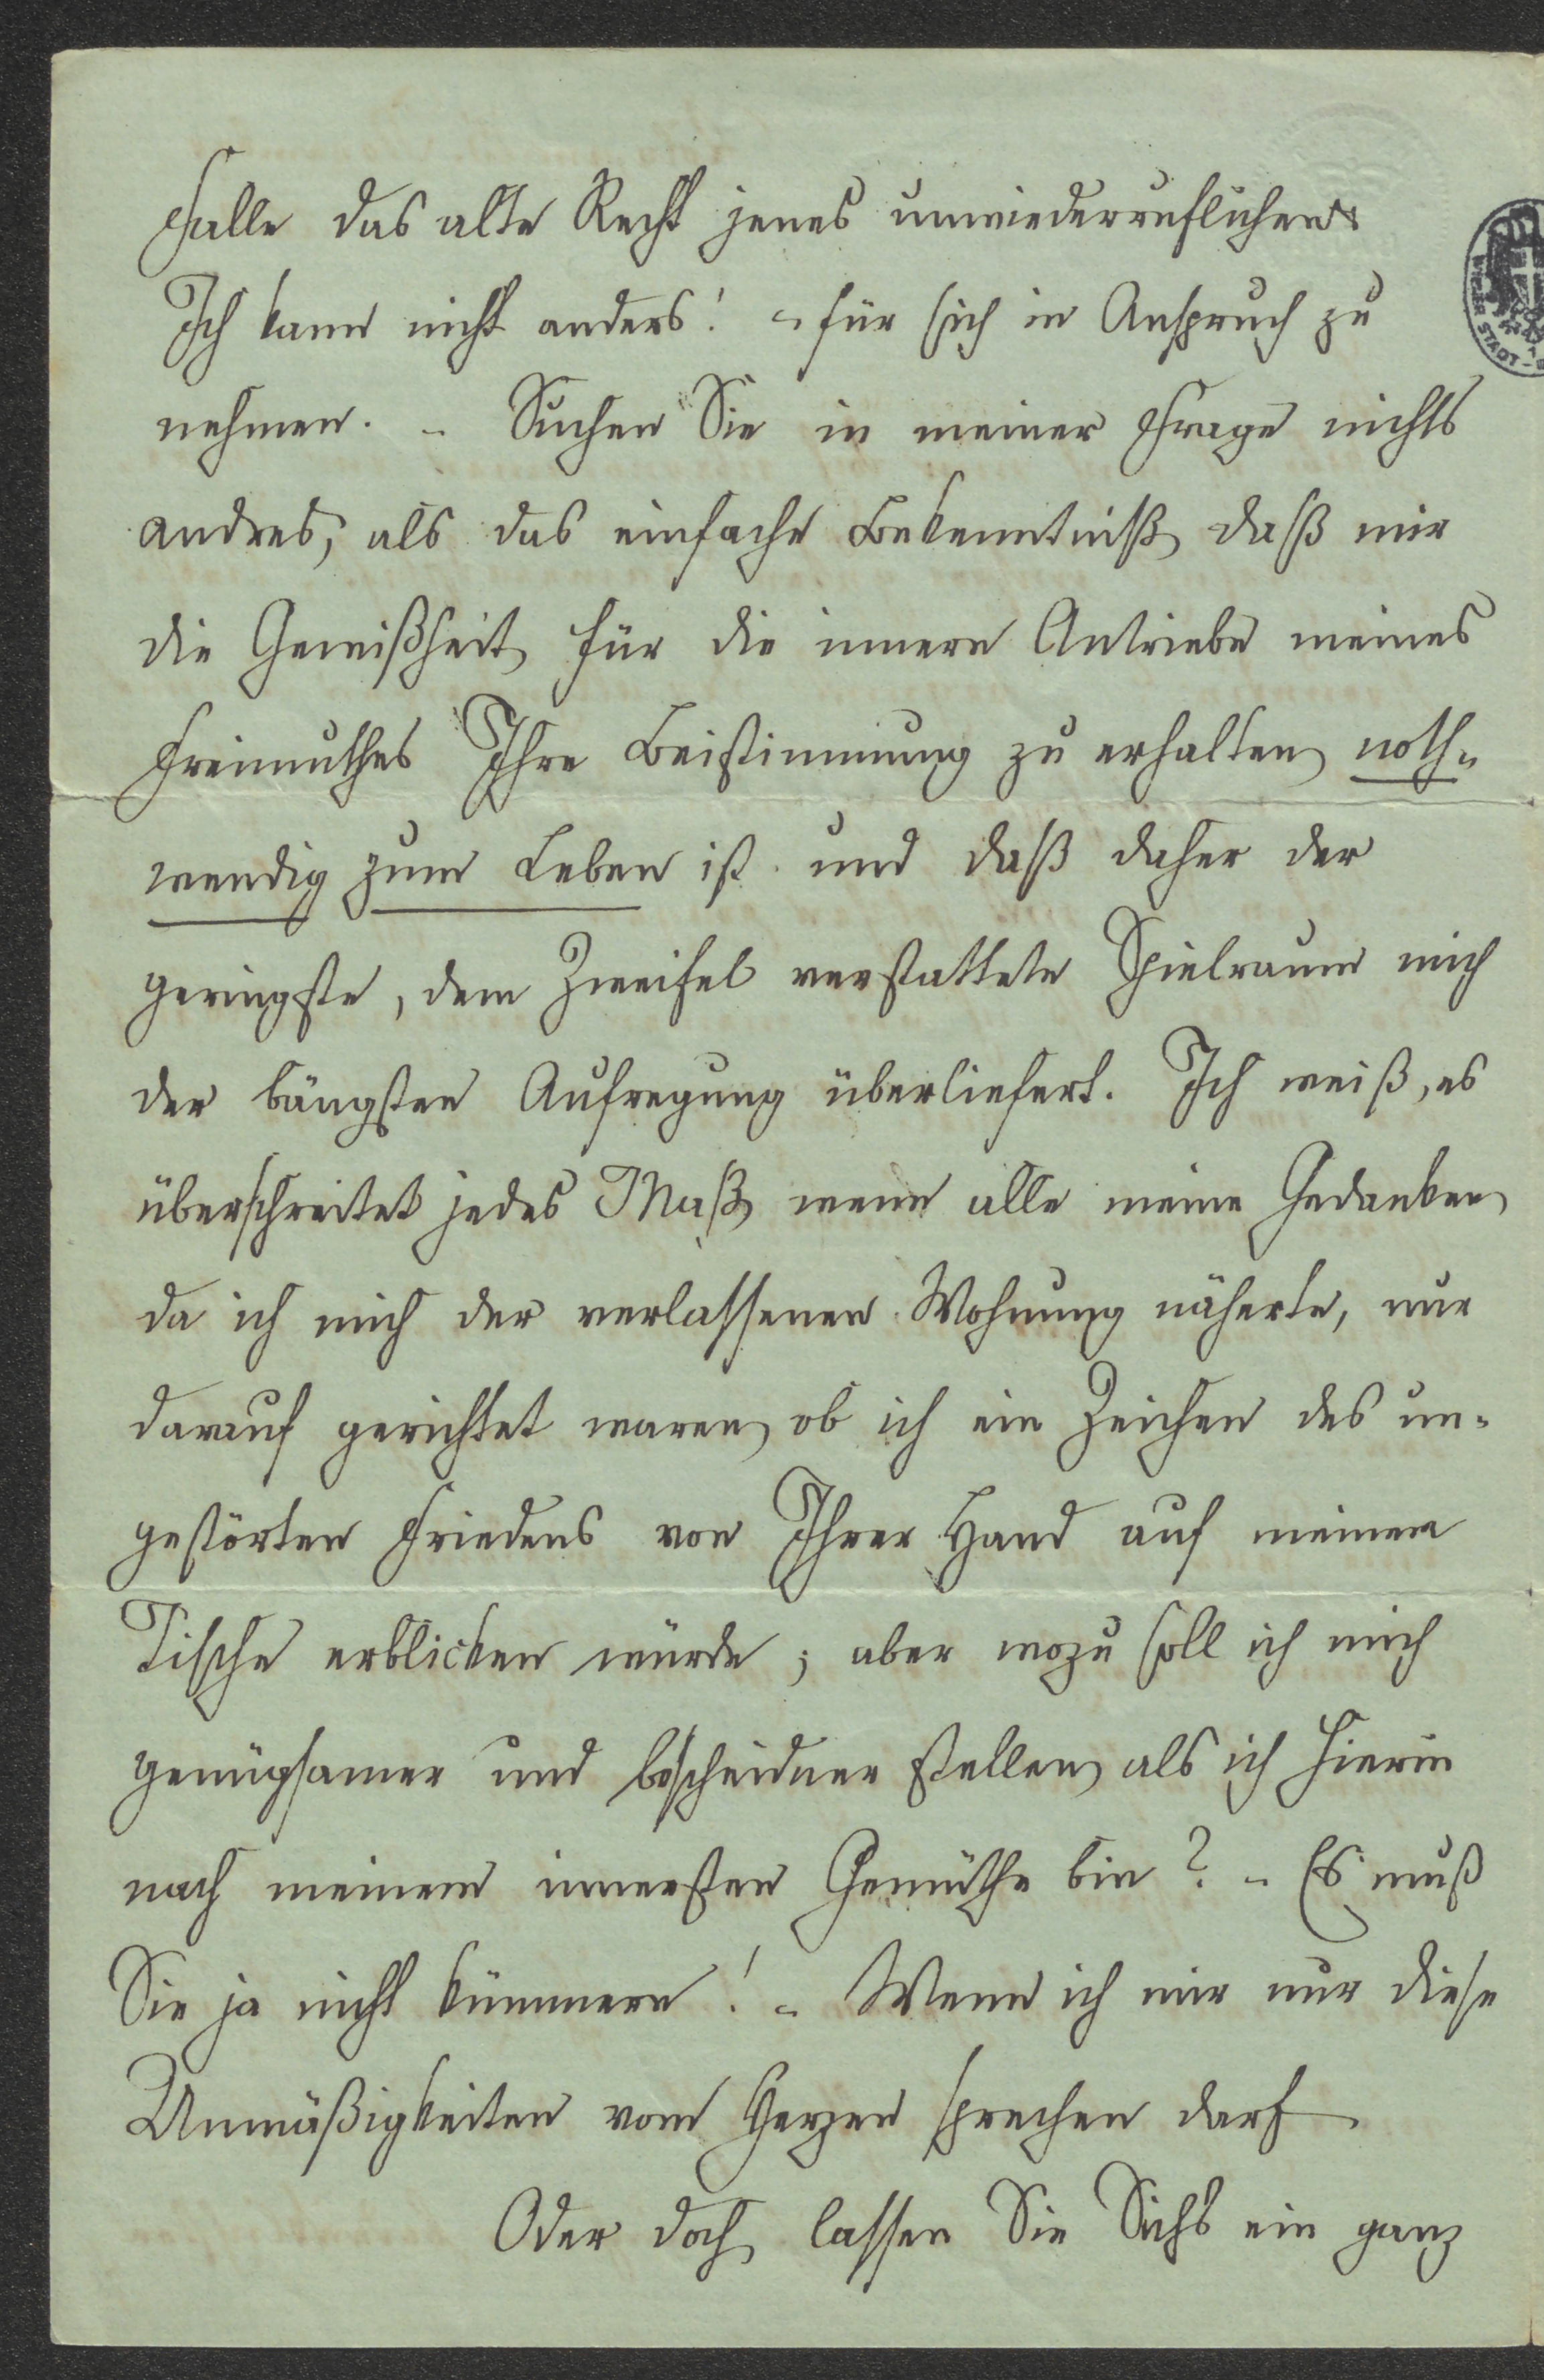 Falle das alte Recht jenes unwiederruflichen
Ich kann nicht anders! – für sich in Anspruch zu
nehmen. – Suchen Sie in meiner Frage nichts
andres, als das einfache Bekenntniß, daß mir
die Gewißheit, für die innern Antriebe meines
Freimuthes Ihre Beistimmung zu erhalten, noth-
wendig zum Leben ist. und daß daher der
geringste, dem Zweifel verstattete Spielraum mich
der bängsten Aufregung überliefert. Ich weiß, es
überschreitet jedes Maß, wenn alle meine Gedanken,
da ich mich der verlassenen Wohnung näherte, nur
darauf gerichtet waren, ob ich ein Zeichen des un-
gestörten Friedens von Ihrer Hand auf meinem
Tische erblicken würde; aber wozu soll ich mich
genügsamer und bescheidner stellen, als ich hierin
nach meinem innersten Gemüthe bin? – Es muß
Sie ja nicht kümmern! – Wenn ich mir nur diese
Unmäßigkeiten vom Herzen sprechen darf.
Oder doch, lassen Sie Sich's ein ganz
STADT-